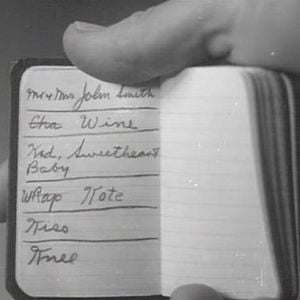 Mr & Mrs John Smith
Cha Wine
Kid, Sweetheart
Baby
WRap Note
Kiss
Knee